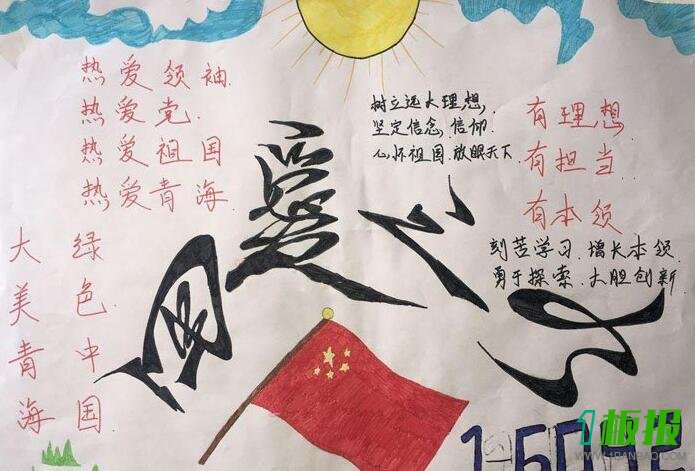 热爱领袖.
热爱党.
热爱祖国
热爱青海.
大美青海
绿色中国
树立远大理想,
坚定信念.信仰.
心怀祖国.放眼天下.
有理想
有担当.
有本领
刻苦学习.增长本领.
勇于探索.大胆创新.
国爱
1板报
WWW.1BANBAO.COM